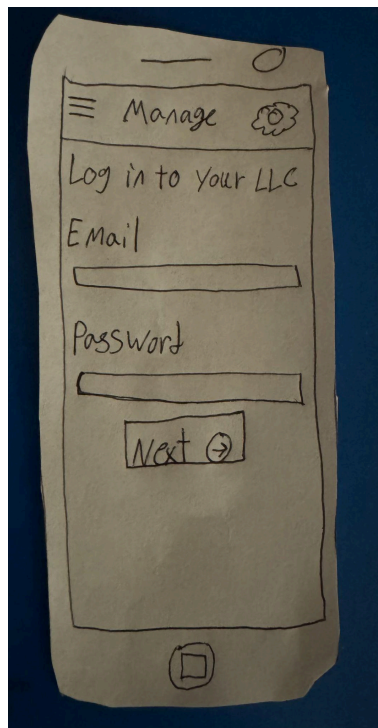 Manage
Log in to Your LLC
EMail
Password
Next